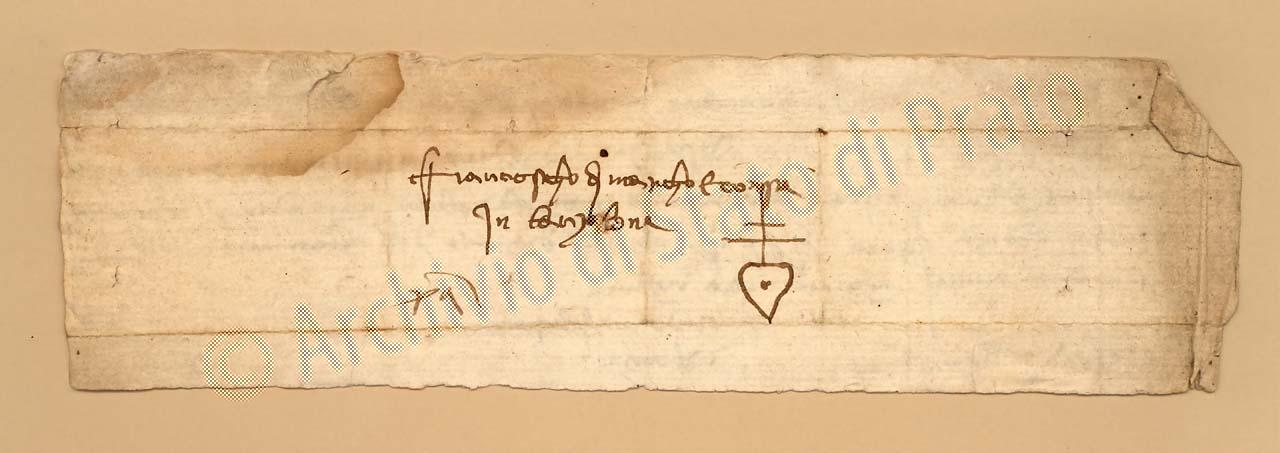 Francescho di Marcho e Conpa
In Barzalona
© Archivio di Stato di Prato